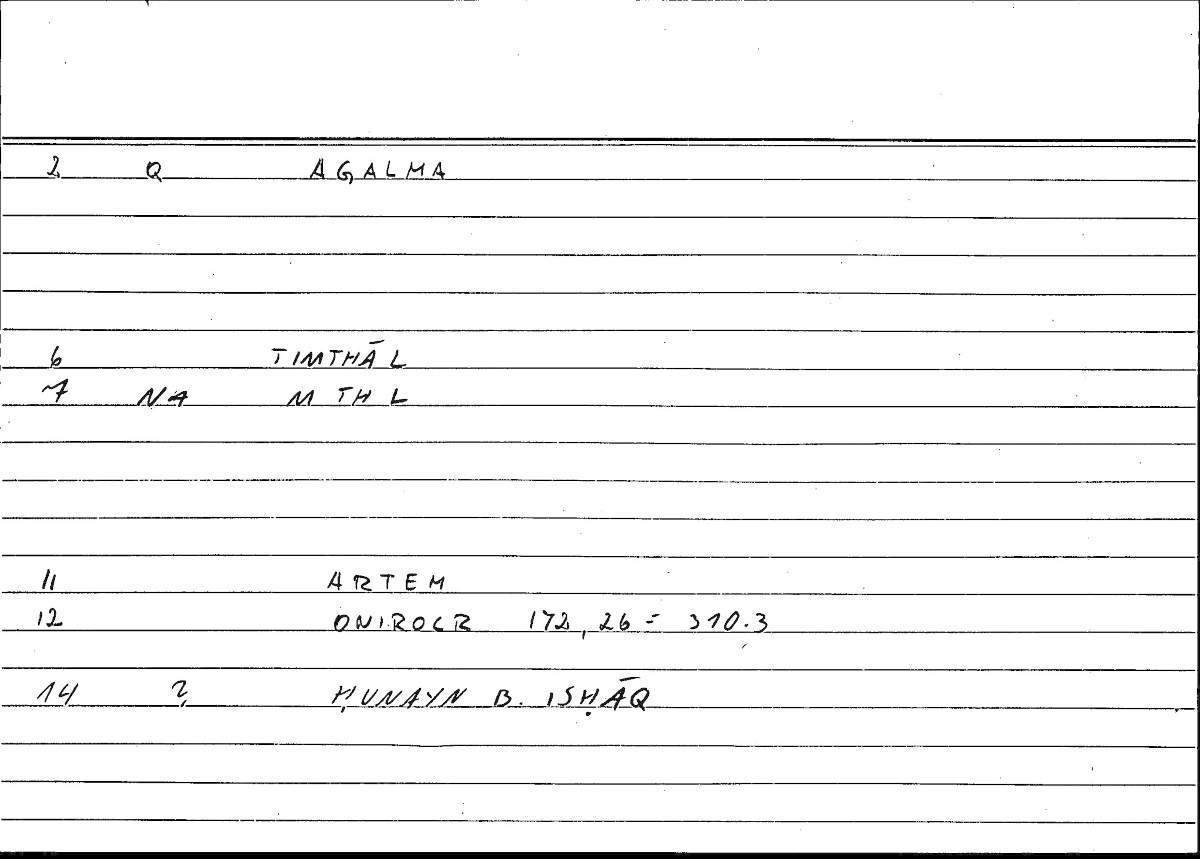 2 Q AGALMA
6 TIMTHĀL
7 NA M TH L
11 ARTEM
12 ONIROCR 172,26 = 310.3
14 ? ḤUNAYN B. ISḤĀQ